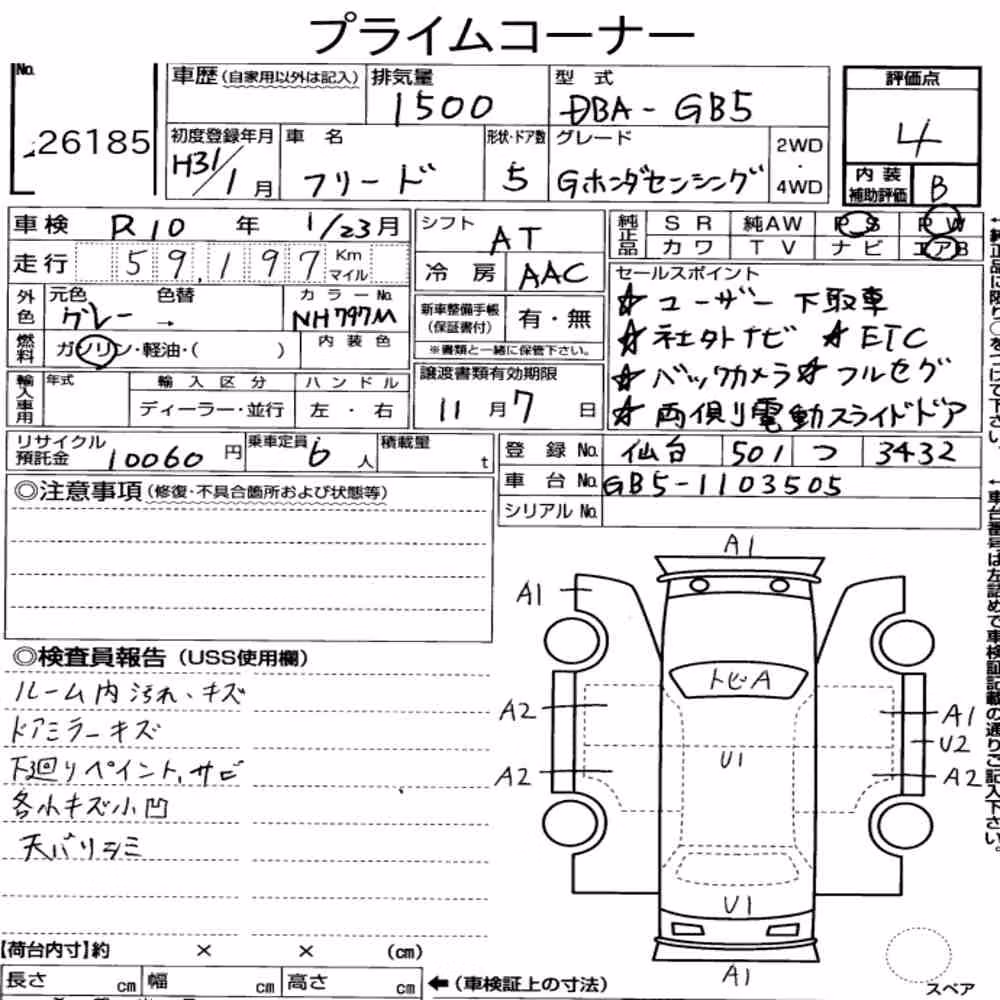 プライムコーナー
No. 26185
車歴(自家用以外は記入) 排気量 1500 型式 DBA-GB5 評価点 4
初度登録年月 H31/1月 車名 フリード 形状・ドア数 5 グレード Gホンダセンシング 2WD・4WD
内装補助評価 B
車検 R10年 1/23月 シフト AT
純正品 SR 純AW PS PW
カワ TV ナビ エアB
走行 59,197 Km マイル 冷房 AAC
外色 元色 グレー → 色替 カラーNo. NH797M
新車整備手帳(保証書付) 有・無
※書類と一緒に保管下さい。
燃料 ガソリン・軽油・( ) 内装色
輸入車用 年式 輸入区分 ハンドル
ディーラー・並行 左・右
譲渡書類有効期限
11月7日
セールスポイント
☆ユーザー下取車
☆社外ナビ ☆ETC
☆バックカメラ☆フルセグ
☆両側電動スライドドア
リサイクル預託金 10060円 乗車定員 6人 積載量 t
登録No. 仙台 501 つ 3432
車台No. GB5-1103505
シリアルNo.
◎注意事項(修復・不具合箇所および状態等)
◎検査員報告(USS使用欄)
ルーム内汚れ、キズ
ドアミラーキズ
下廻りペイント,サビ
各小キズ小凹
天バリシミ
A1
A1
トビA
A2
A1
U2
U1
A2
A2
U1
A1
スペア
【荷台内寸】約 × × (cm)
長さ cm 幅 cm 高さ cm ←(車検証上の寸法)
↑純正品に限り○をつけて下さい。
↑車台番号は左詰めで車検証記載の通りご記入下さい。